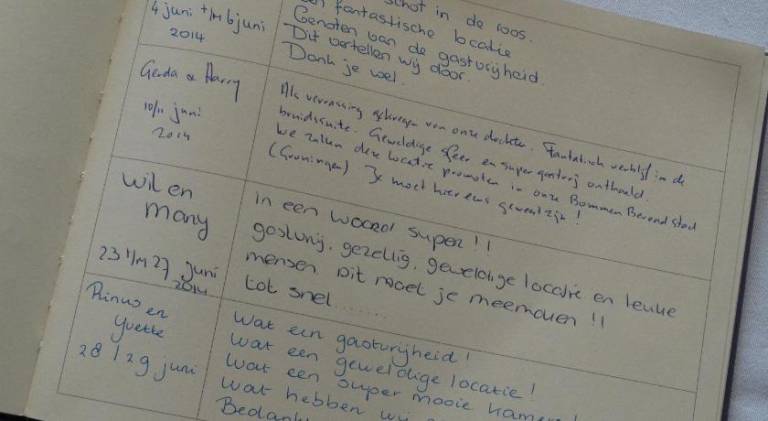 schot in de roos.
fantastische locatie
4 juni t/m 6 juni
2014
Genoten van de gastvrijheid.
Dit vertellen wij door.
Dank je wel.
Gerda & Harry
10/11 juni
2014
Als verrassing gekregen van onze dochter. Fantastisch verblijf in de
bruidssuite. Geweldige sfeer en super gastvrij onthaald.
We zullen deze locatie promoten in onze Bommen Berend stad
(Groningen) Je moet hier eens geweest zijn!
Wil en
Many
23 t/m 27 juni
2014
In een woord super!!
gastvrij, gezellig, geweldige locatie en leuke
mensen Dit moet je meemaken!!
tot snel........
Rinus en
Yvette
28/29 juni
Wat een gastvrijheid!
Wat een geweldige locatie!
Wat een super mooie kamers!
Wat hebben wij
Bedankt